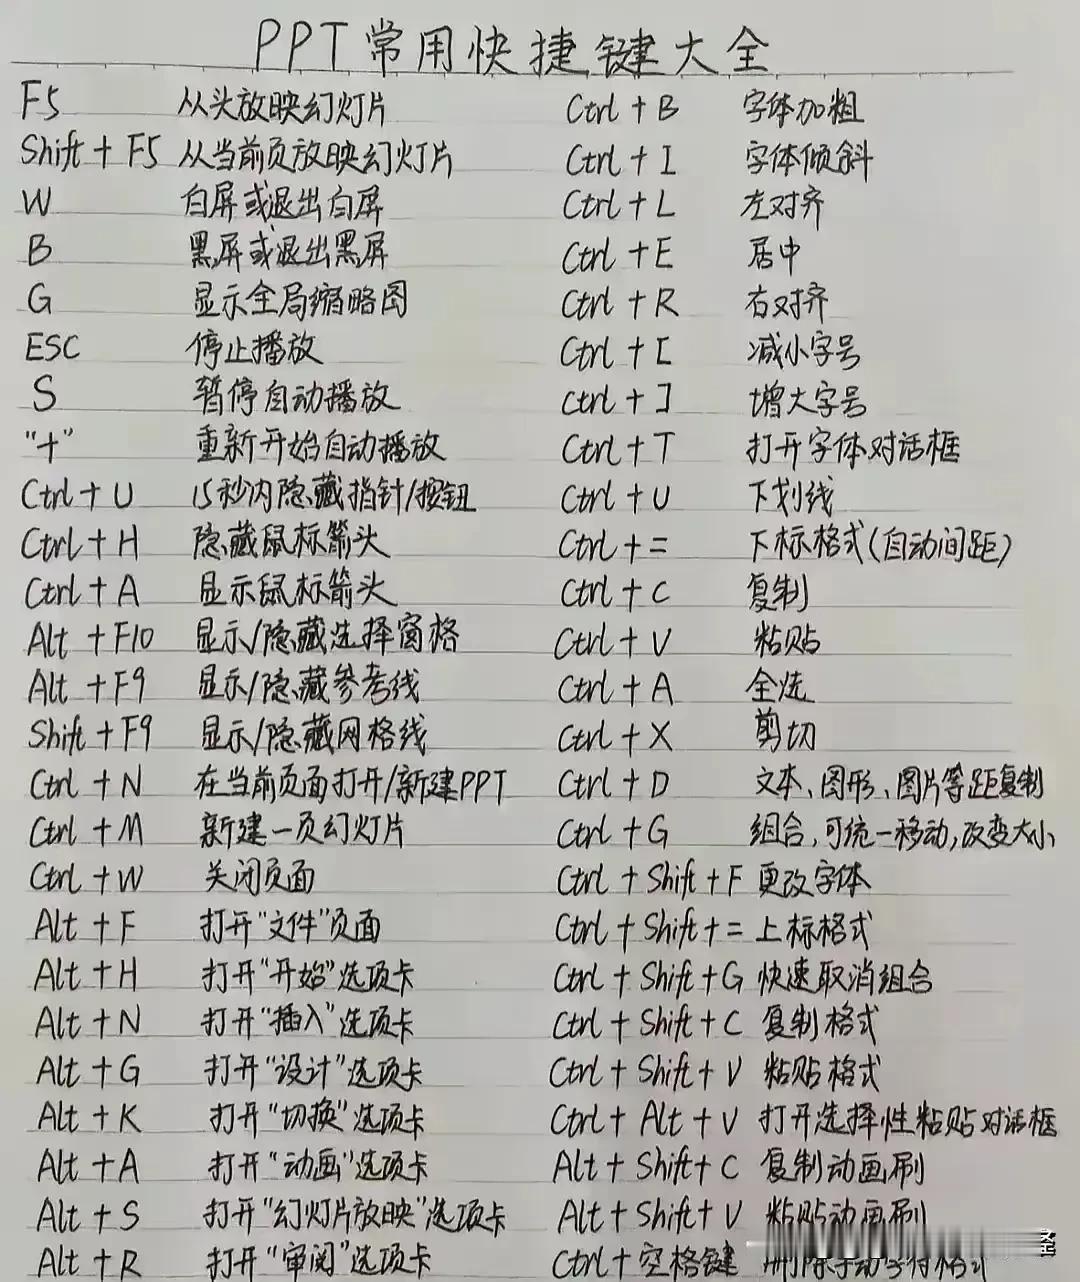 PPT常用快捷键大全
F5 从头放映幻灯片
Shift + F5 从当前页放映幻灯片
W 白屏或退出白屏
B 黑屏或退出黑屏
G 显示全局缩略图
ESC 停止播放
S 暂停自动播放
"+" 重新开始自动播放
Ctrl + U 15秒内隐藏指针/按钮
Ctrl + H 隐藏鼠标箭头
Ctrl + A 显示鼠标箭头
Alt + F10 显示/隐藏选择窗格
Alt + F9 显示/隐藏参考线
Shift + F9 显示/隐藏网格线
Ctrl + N 在当前页面打开/新建PPT
Ctrl + M 新建一页幻灯片
Ctrl + W 关闭页面
Alt + F 打开"文件"页面
Alt + H 打开"开始"选项卡
Alt + N 打开"插入"选项卡
Alt + G 打开"设计"选项卡
Alt + K 打开"切换"选项卡
Alt + A 打开"动画"选项卡
Alt + S 打开"幻灯片放映"选项卡
Alt + R 打开"审阅"选项卡
Ctrl + B 字体加粗
Ctrl + I 字体倾斜
Ctrl + L 左对齐
Ctrl + E 居中
Ctrl + R 右对齐
Ctrl + [ 减小字号
Ctrl + ] 增大字号
Ctrl + T 打开字体对话框
Ctrl + U 下划线
Ctrl + = 下标格式(自动间距)
Ctrl + C 复制
Ctrl + V 粘贴
Ctrl + A 全选
Ctrl + X 剪切
Ctrl + D 文本、图形、图片等距复制
Ctrl + G 组合,可统一移动,改变大小
Ctrl + Shift + F 更改字体
Ctrl + Shift + = 上标格式
Ctrl + Shift + G 快速取消组合
Ctrl + Shift + C 复制格式
Ctrl + Shift + V 粘贴格式
Ctrl + Alt + V 打开选择性粘贴对话框
Alt + Shift + C 复制动画刷
Alt + Shift + V 粘贴动画刷
Ctrl + 空格键